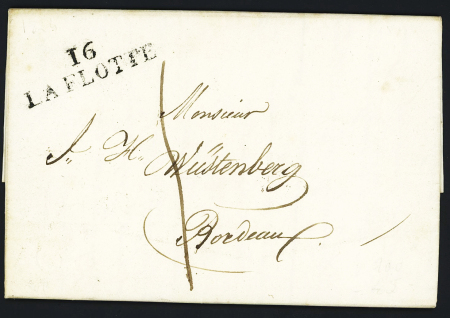 16
LA FLOTTE
Monsieur
J. H. Wüstenberg
Bordeaux.